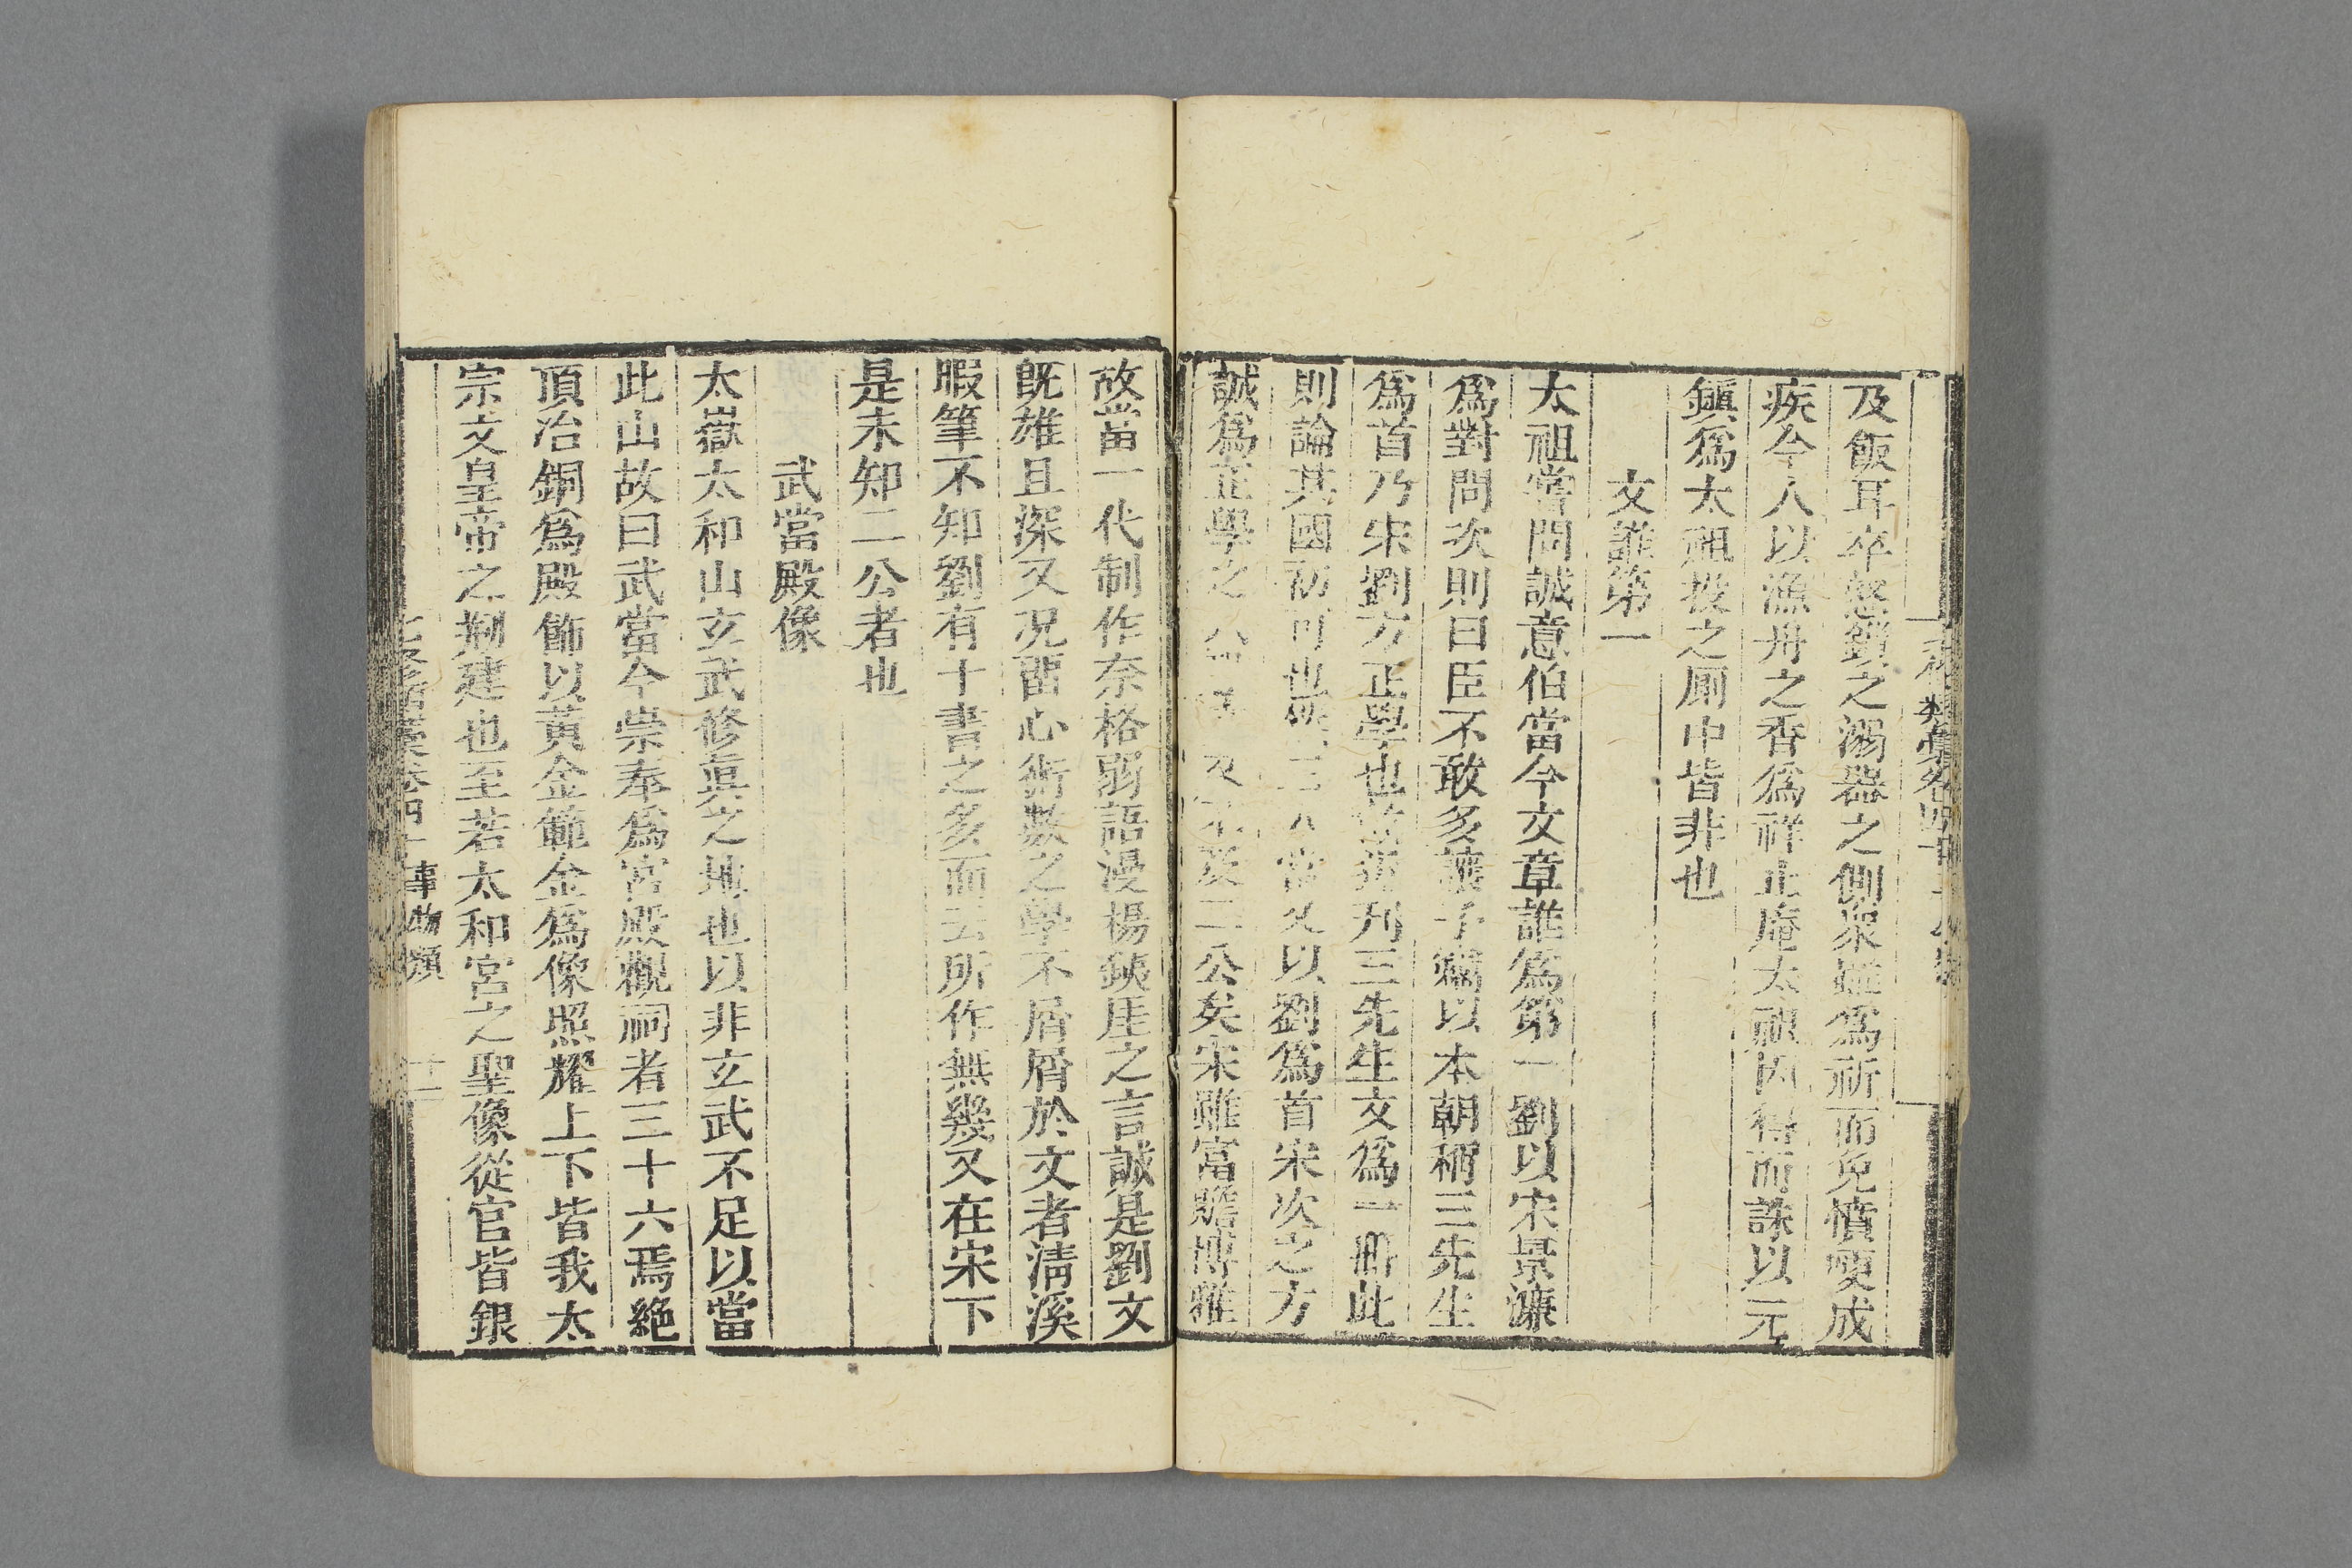 及飯耳卒怒鎖之溺器之側衆雖爲祈而免憤哽成
疾今人以漁舟之香爲祥止庵太祖因得而誅以元
鎭爲太祖投之厠中皆非也
文誰第一
太祖嘗問誠意伯當今文章誰爲第一劉以宋景濂
爲對問次則曰臣不敢多讓予竊以本朝稱三先生
爲首乃宋劉方正學也 刊三先生文爲一冊此
則論其國初可也 三 當又以劉爲首宋次之方
誠爲正學之 又不及二公矣宋雖富贍博雅
故當一代制作奈格弱語漫楊鐵厓之言誠是劉文
旣雄且深又况畱心術數之學不屑屑於文者淸溪
暇筆不知劉有十書之多而云所作無幾又在宋下
是未知二公者也
武當殿像
太嶽太和山玄武修眞之地也以非玄武不足以當
此山故曰武當今崇奉爲宮殿觀祠者三十六焉絶
頂冶銅爲殿飾以黃金範金爲像照耀上下皆我太
宗文皇帝之剏建也至若太和宮之聖像從官皆銀
七修類稾卷四十 事物類 十二